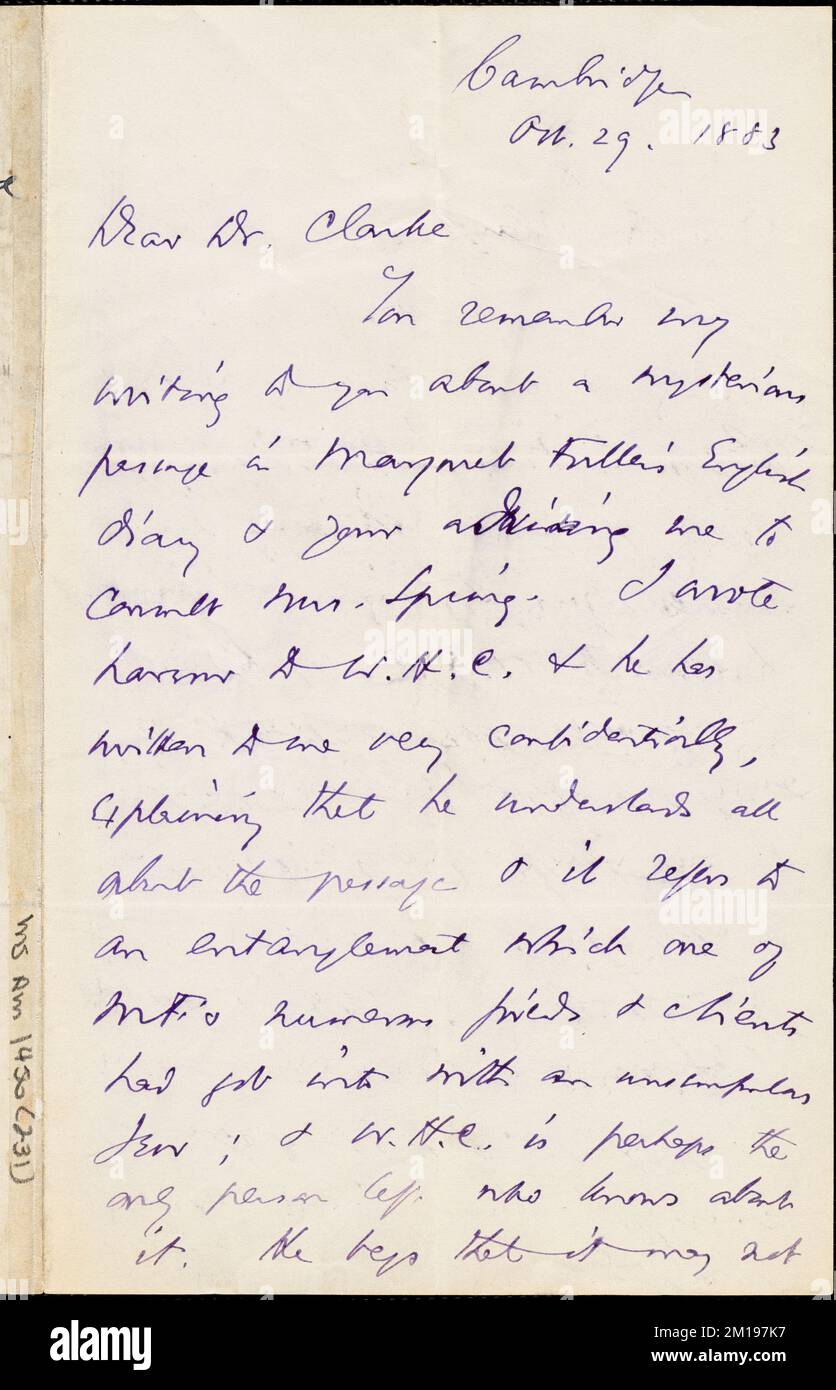 Cambridge
Oct. 29. 1883
Dear Dr. Clarke
You remember my
writing to you about a mysterious
passage in Margaret Fuller's English
diary & your advising me to
consult Mrs. Spring. I wrote
however to W. H. C. & he has
written to me very confidentially,
explaining that he understands all
about the passage & it refers to
an entanglement which one of
M F's numerous friends & clients
had got into with an unscrupulous
Jew; & W. H. C. is perhaps the
only person left who knows about
it. He begs that it may not
MS Am 1450 (231)
alamy
2M197K7
www.alamy.com